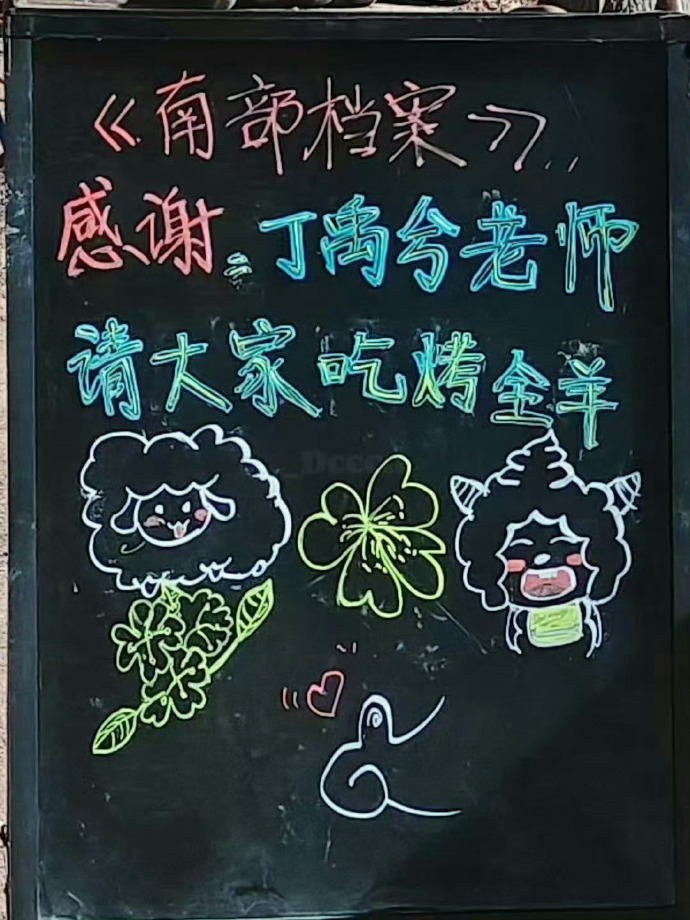 《南部档案》...
感谢：丁禹兮老师
请大家吃烤全羊